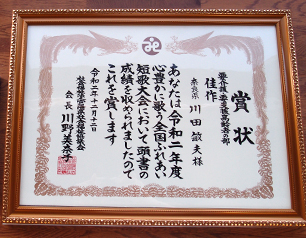 賞状
佳作
奈良県 川田敏夫様
あなたは令和二年度
心豊かに歌う全国ふれあい
短歌大会において頭書の
成績を収められましたので
これを賞します
令和二年十二月十日
会長 川野美奈子